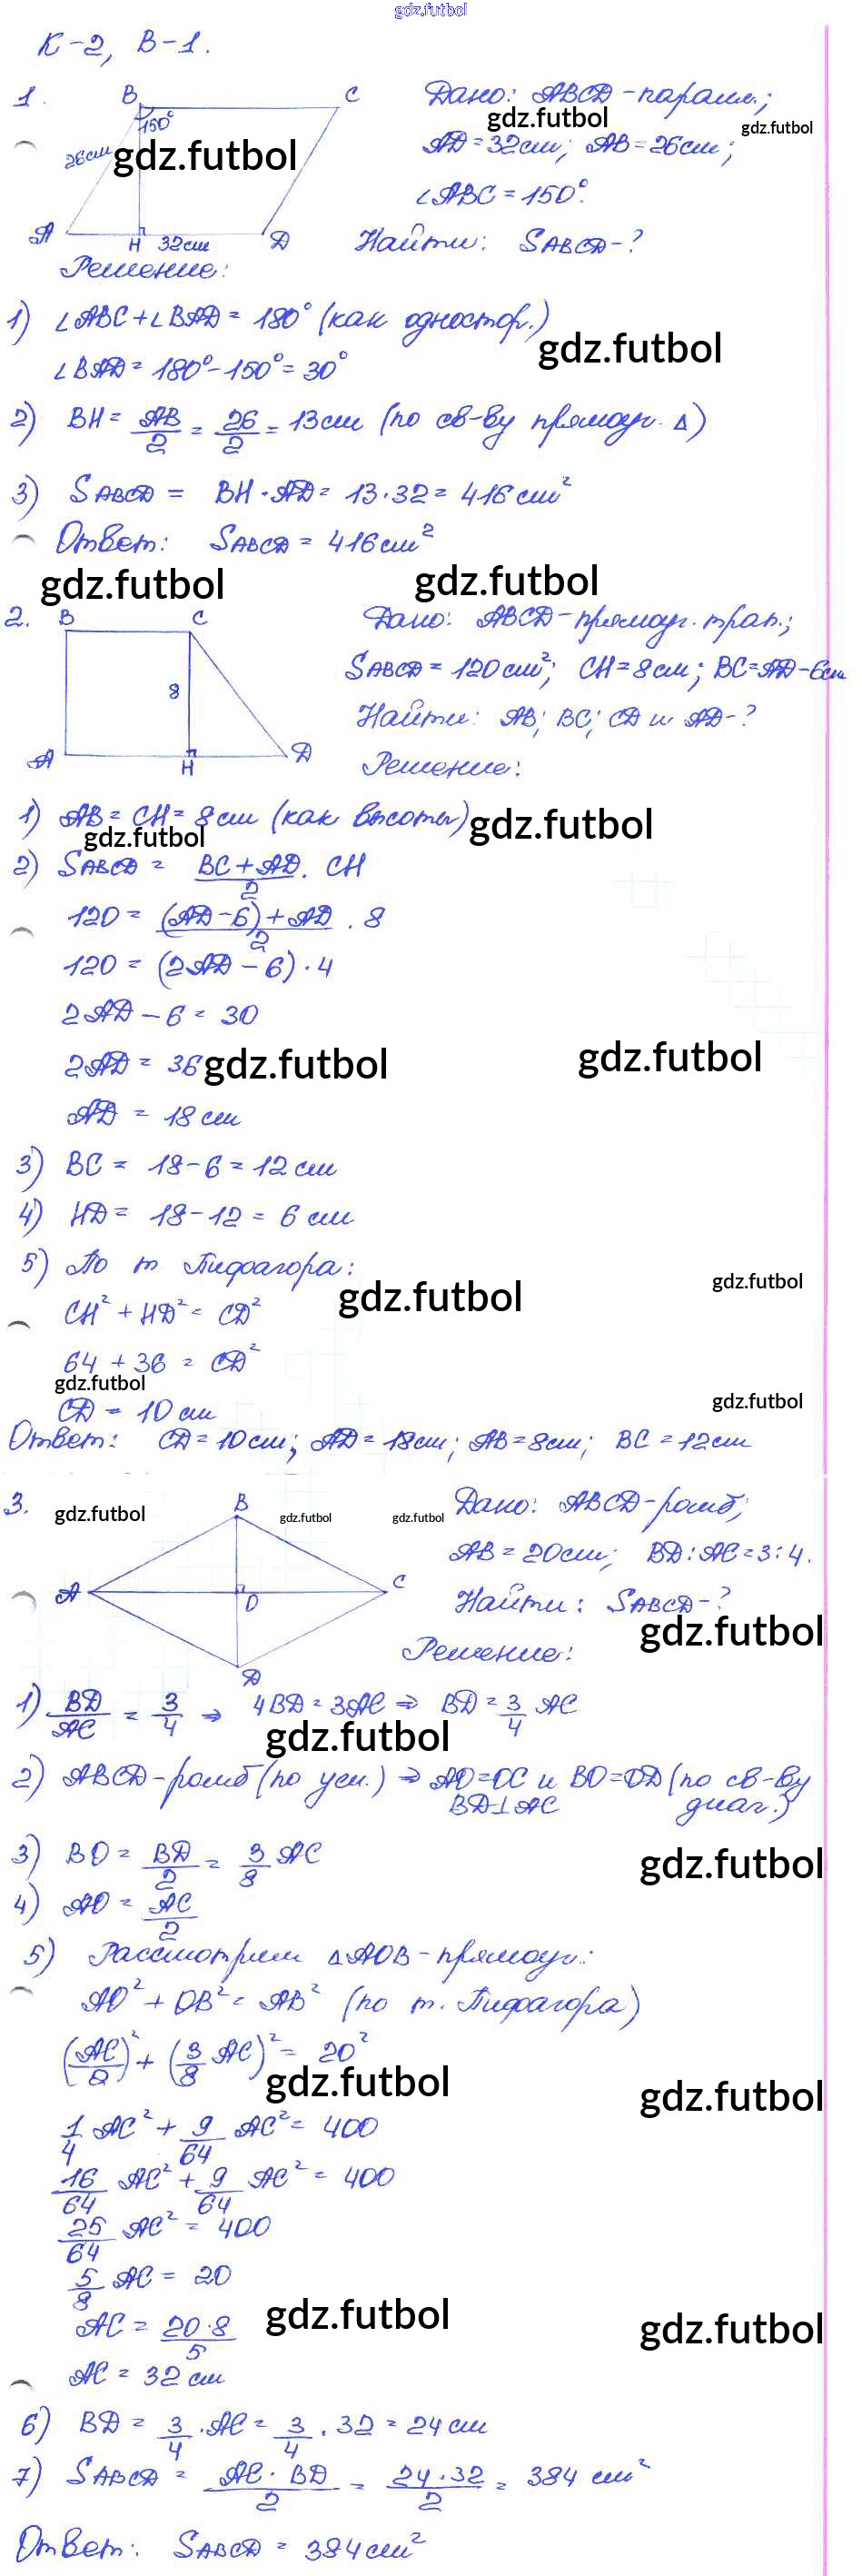 gdz.futbol
К-2, В-1.
1.
B
C
150°
26см
A
H
32см
D
gdz.futbol
Дано: ABCD-паралл.;
gdz.futbol
gdz.futbol
AD=32см; AB=26см;
∠ABC=150°.
Найти: SABCD-?
Решение:
1) ∠ABC+∠BAD=180° (как одностор.)
gdz.futbol
∠BAD=180°-150°=30°
2) BH= AB/2 = 26/2 = 13см (по св-ву прямоуг. Δ)
3) SABCD = BH·AD=13·32=416см²
Ответ: SABCD=416см²
gdz.futbol
gdz.futbol
2.
B
C
8
A
H
D
Дано: ABCD-прямоуг. трап.;
SABCD=120см²; CH=8см; BC=AD-6см
Найти: AB; BC; CD и AD-?
Решение:
1) AB=CH=8см (как высоты)
gdz.futbol
gdz.futbol
2) SABCD = (BC+AD)/2 · CH
120 = ((AD-6)+AD)/2 · 8
120 = (2AD-6)·4
2AD-6=30
2AD=36
gdz.futbol
gdz.futbol
AD=18см
3) BC = 18-6=12см
4) HD = 18-12=6см
5) По т Пифагора:
gdz.futbol
gdz.futbol
CH²+HD²=CD²
64+36=CD²
gdz.futbol
gdz.futbol
CD=10см
Ответ: CD=10см; AD=18см; AB=8см; BC=12см
3.
gdz.futbol
B
gdz.futbol
gdz.futbol
A
O
C
D
Дано: ABCD-ромб;
AB=20см; BD:AC=3:4.
Найти: SABCD-?
gdz.futbol
Решение:
1) BD/AC = 3/4 ⇒ 4BD=3AC ⇒ BD= 3/4 AC
gdz.futbol
2) ABCD-ромб (по усл.) ⇒ AO=OC и BO=OD (по св-ву
BD⊥AC диаг.)
3) BO= BD/2 = 3/8 AC
gdz.futbol
4) AO= AC/2
5) Рассмотрим ΔAOB-прямоуг.:
AO²+OB²=AB² (по т. Пифагора)
(AC/2)²+(3/8 AC)²=20²
gdz.futbol
gdz.futbol
1/4 AC²+ 9/64 AC²=400
16/64 AC²+ 9/64 AC²=400
25/64 AC²=400
5/8 AC=20
AC= 20·8/5
gdz.futbol
gdz.futbol
AC=32см
6) BD= 3/4 ·AC= 3/4 ·32=24см
7) SABCD= AC·BD/2 = 24·32/2 = 384см²
Ответ: SABCD=384см²